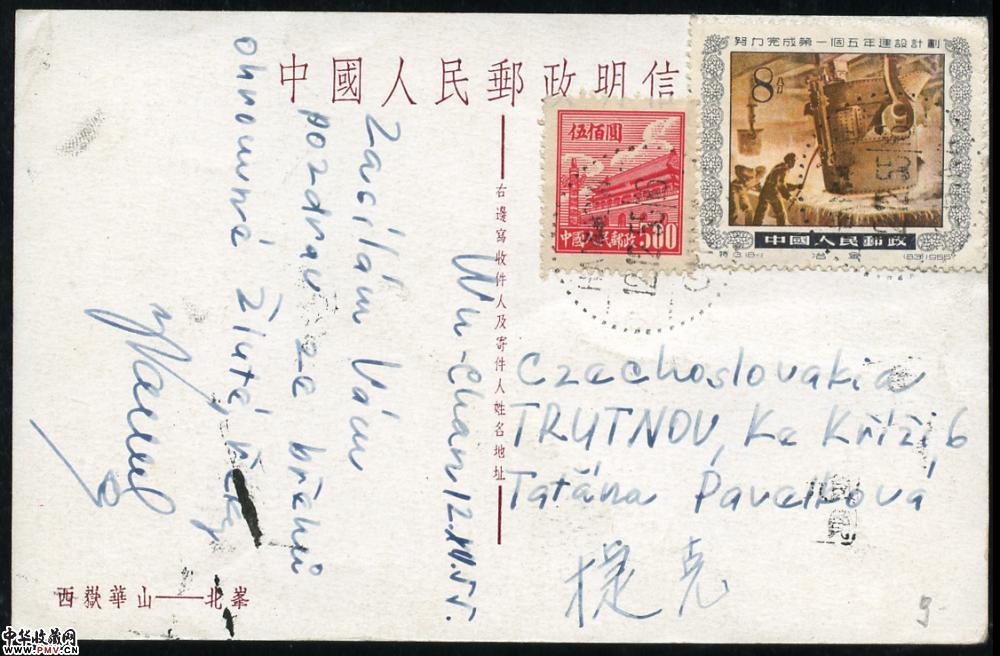 中國人民郵政明信
努力完成第一個五年建設計劃
8分
中國人民郵政
特13.(18-1)
冶
(83)1955
伍佰圓
中國人民郵政 500
右邊寫收件人及寄件人姓名地址
Wu-Chan 12.XII.55.
Zasílám Vám
pozdrav ze břehů
ohromné Žluté řeky
Czechoslovakia
TRUTNOV, Ke Kříži 6
Taťána Pavelková
捷克
西嶽華山——北峯
9
中华收藏网
www.PMV.CN